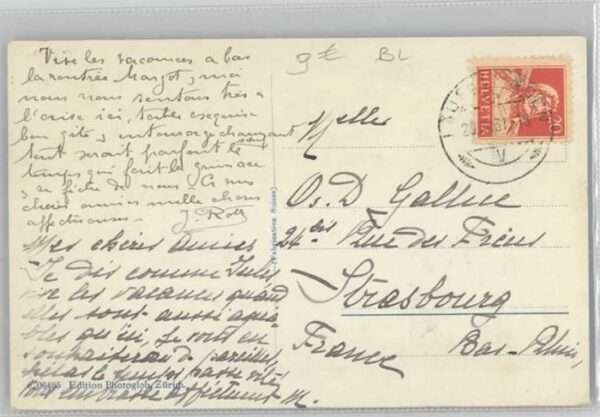 Vive les vacances à bas
la rentrée Margot, moi
nous nous sentons très à
l'aise ici,
bon gîte, entourage changeant
tout serait parfait le
temps qui fait la grimace
se fiche de nous. À vous
chères amies mille choses
affectueuses
J. Roth
Mes chères Amies
Je dis comme Jules
vive les vacances quand
elles sont aussi agréa
bles qu'ici, je vous en
souhaiterais de pareilles,
hélas le temps passe vite
vous embrasse affectueusement M.
9€ BL
Melles
Os. D Galline
24 bis Rue des Frères
Strasbourg
France Bas-Rhin,
HELVETIA
20
V
Edition Photoglob, Zürich